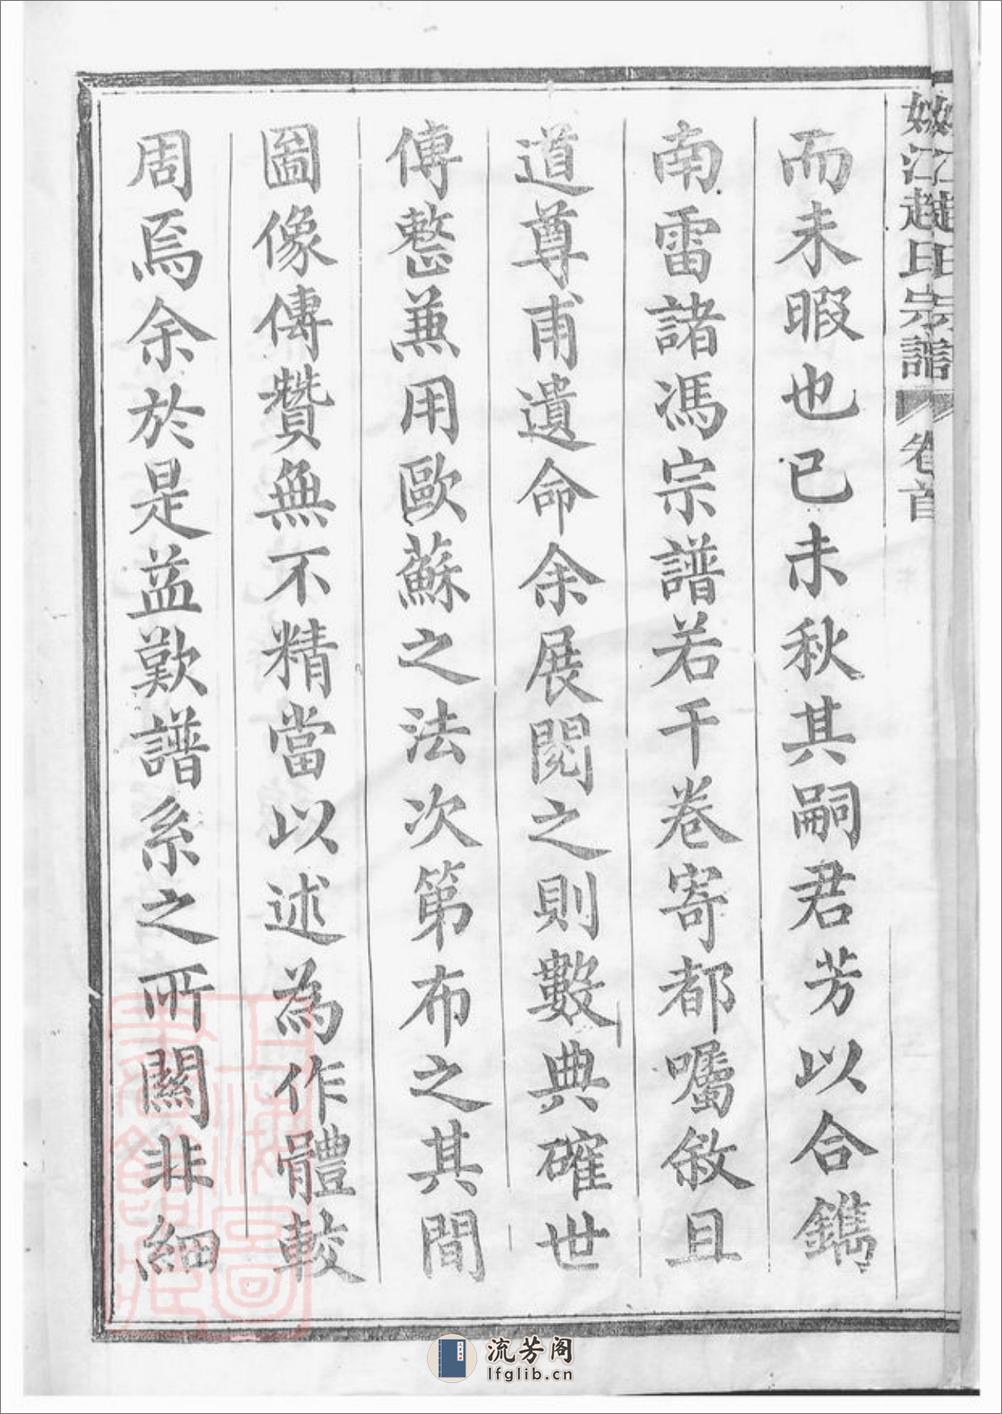 姚江趙氏宗譜 卷首
而未暇也已未秋其嗣君芳以合鐫
南雷諸馮宗譜若干卷寄都囑敘且
道尊甫遺命余展閱之則數典確世
傳整兼用歐蘇之法次第布之其間
圖像傳贊無不精當以述為作體較
周焉余於是益歎譜系之所關非細
流芳阁
lfglib.cn